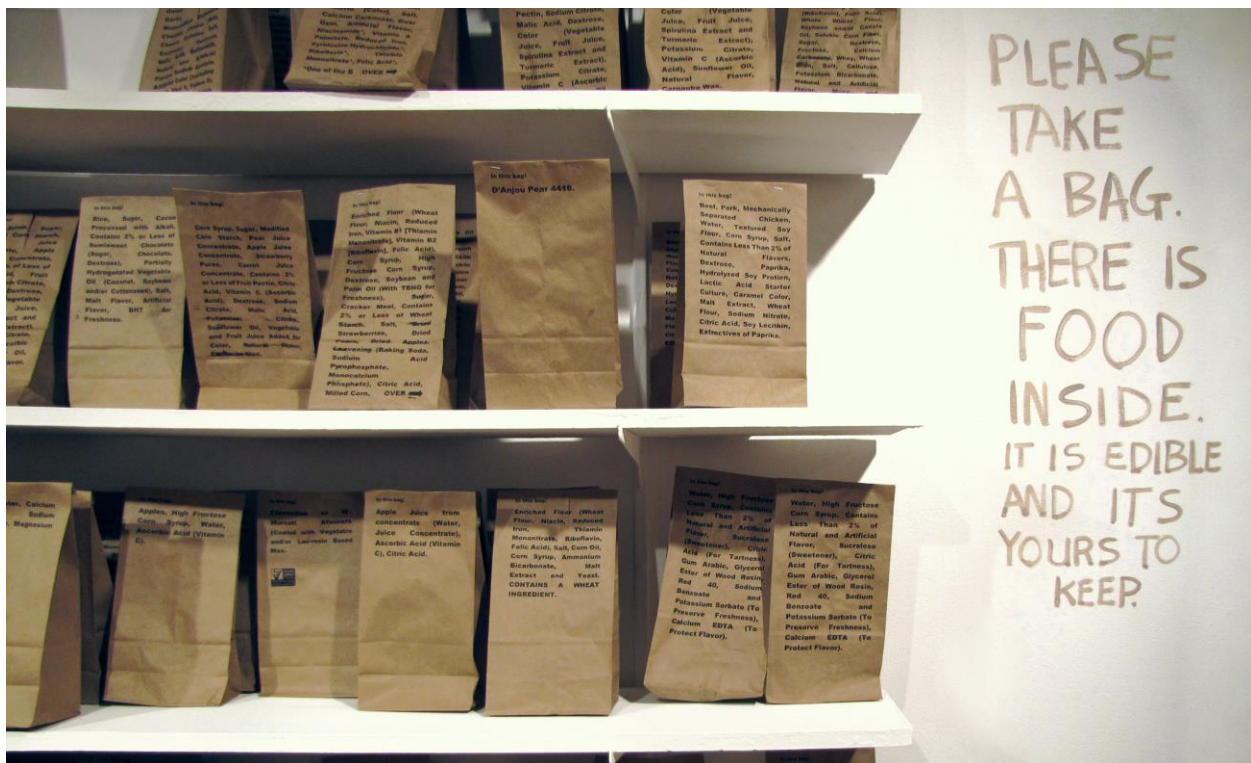 Calcium Carbonate,
Pyridoxine Hydrochloride*,
Riboflavin*, Thiamin
Mononitrate*, Folic Acid*,
*One of the B OVER
Pectin, Sodium Citrate,
Malic Acid, Dextrose,
Color (Vegetable
Juice, Fruit Juice,
Spirulina Extract and
Turmeric Extract),
Potassium Citrate,
Vitamin C (Ascorbic
Color (Vegetable
Juice, Fruit Juice,
Spirulina Extract and
Turmeric Extract),
Potassium Citrate,
Vitamin C (Ascorbic
Acid), Sunflower Oil,
Natural Flavor,
Carnauba Wax.
Whole Wheat Flour,
Soybean and/or Canola
Oil, Soluble Corn Fiber,
Sugar, Dextrose,
Fructose, Calcium
Carbonate, Whey, Wheat
Bran, Salt, Cellulose,
Potassium Bicarbonate,
Natural and Artificial
In this bag!
Rice, Sugar, Cocoa
Processed with Alkali,
Contains 2% or Less of
Semisweet Chocolate
(Sugar, Chocolate,
Dextrose), Partially
Hydrogenated Vegetable
Oil (Coconut, Soybean
and/or Cottonseed), Salt,
Malt Flavor, Artificial
Flavor, BHT for
Freshness.
In this bag!
Corn Syrup, Sugar, Modified
Corn Starch, Pear Juice
Concentrate, Apple Juice
Concentrate, Strawberry
Puree, Carrot Juice
Concentrate, Contains 2%
or Less of Fruit Pectin, Citric
Acid, Vitamin C (Ascorbic
Acid), Dextrose, Sodium
Citrate, Malic Acid,
Potassium Citrate,
Sunflower Oil, Vegetable
and Fruit Juice Added for
Color, Natural Flavor,
Carnauba Wax.
In this bag!
Enriched Flour (Wheat
Flour, Niacin, Reduced
Iron, Vitamin B1 [Thiamin
Mononitrate], Vitamin B2
[Riboflavin], Folic Acid),
Corn Syrup, High
Fructose Corn Syrup,
Dextrose, Soybean and
Palm Oil (With TBHQ for
Freshness), Sugar,
Cracker Meal, Contains
2% or Less of Wheat
Starch, Salt, Dried
Strawberries, Dried
Pears, Dried Apples,
Leavening (Baking Soda,
Sodium Acid
Pyrophosphate,
Monocalcium
Phosphate), Citric Acid,
Milled Corn, OVER
In this bag!
D'Anjou Pear 4416.
In this bag!
Beef, Pork, Mechanically
Separated Chicken,
Water, Textured Soy
Flour, Corn Syrup, Salt,
Contains Less Than 2% of
Natural Flavors,
Dextrose, Paprika,
Hydrolyzed Soy Protien,
Lactic Acid Starter
Culture, Caramel Color,
Malt Extract, Wheat
Flour, Sodium Nitrate,
Citric Acid, Soy Lecithin,
Extractives of Paprika.
Calcium
Sodium
Magnesium
In this bag!
Apples, High Fructose
Corn Syrup, Water,
Ascorbic Acid (Vitamin
C).
In this bag!
(Coated with Vegetable
and/or Lacresin Based
Wax.
In this bag!
Apple Juice from
concentrate (Water,
Juice Concentrate),
Ascorbic Acid (Vitamin
C), Citric Acid.
In this bag!
Enriched Flour (Wheat
Flour, Niacin, Reduced
Iron, Thiamin
Mononitrate, Riboflavin,
Folic Acid), Salt, Corn Oil,
Corn Syrup, Ammonium
Bicarbonate, Malt
Extract and Yeast.
CONTAINS A WHEAT
INGREDIENT.
In this bag!
Water, High Fructose
Corn Syrup, Contains
Less Than 2% of
Natural and Artificial
Flavor, Sucralose
(Sweetener), Citric
Acid (For Tartness),
Gum Arabic, Glycerol
Ester of Wood Rosin,
Red 40, Sodium
Benzoate and
Potassium Sorbate (To
Preserve Freshness),
Calcium EDTA (To
Protect Flavor).
In this bag!
Water, High Fructose
Corn Syrup, Contains
Less Than 2% of
Natural and Artificial
Flavor, Sucralose
(Sweetener), Citric
Acid (For Tartness),
Gum Arabic, Glycerol
Ester of Wood Rosin,
Red 40, Sodium
Benzoate and
Potassium Sorbate (To
Preserve Freshness),
Calcium EDTA (To
Protect Flavor).
PLEASE
TAKE
A BAG.
THERE IS
FOOD
INSIDE.
IT IS EDIBLE
AND ITS
YOURS TO
KEEP.